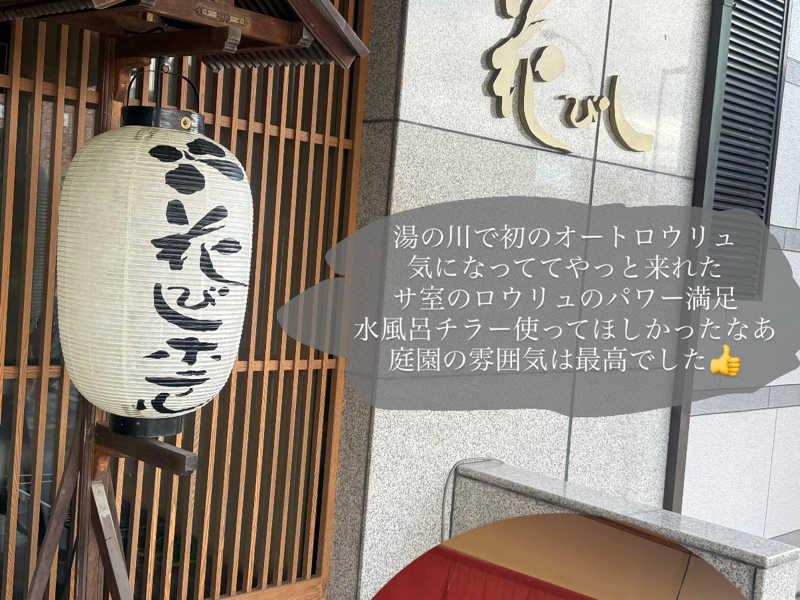 花びし
花びしホテル
湯の川で初のオートロウリュ
気になっててやっと来れた
サ室のロウリュのパワー満足
水風呂チラー使ってほしかったなあ
庭園の雰囲気は最高でした👍